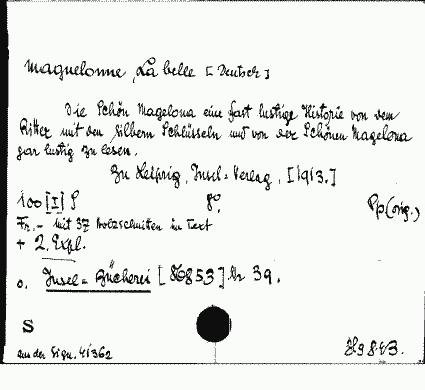 Maguelonne, La belle [Deutsch]
Die Schön Magelona eine fast lustige Historie von dem
Ritter mit den silbern Schlüsseln und von der Schönen Magelona
gar lustig zu lesen.
Zu Leipzig, Insel-Verlag, [1913.]
100 [I] S 8°. Pp. (orig.)
Fr. - mit 37 Holzschnitten im Text
+ 2. Expl.
o. Insel-Bücherei [H6853] Nr 39.
S
aus der Sign. 41362